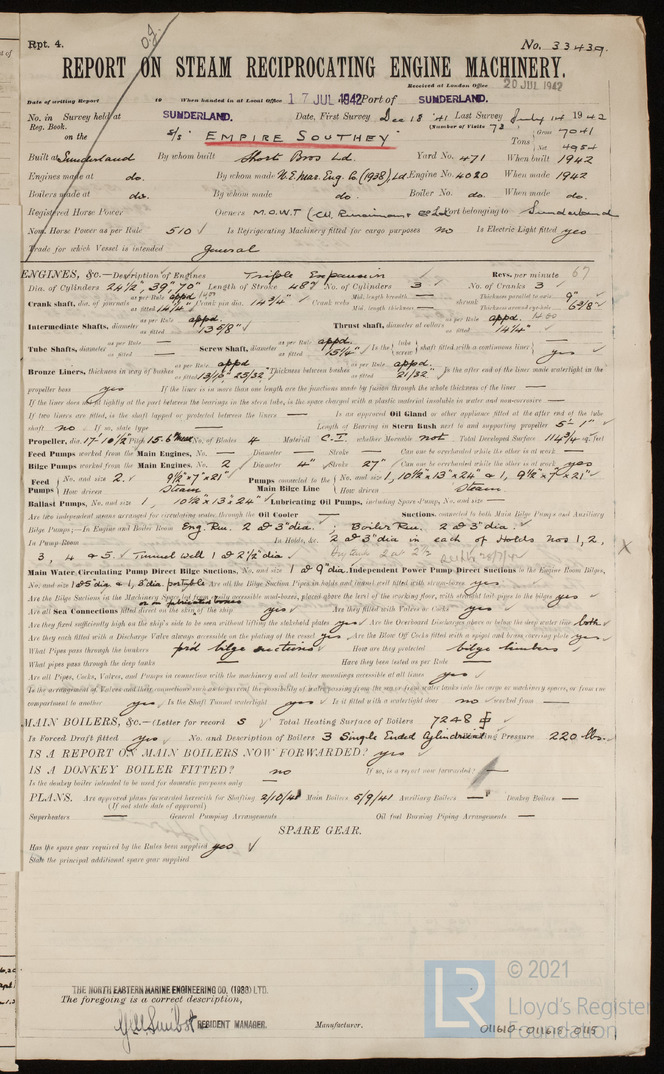 Rpt. 4.
No. 33439.
REPORT ON STEAM RECIPROCATING ENGINE MACHINERY.
Received at London Office 20 JUL 1942
Date of writing Report 19 When handed in at Local Office 17 JUL 1942 Port of SUNDERLAND.
No. in Survey held at SUNDERLAND. Date, First Survey Dec 18 '41 Last Survey July 14 1942
Reg. Book. (Number of Visits 73
on the S/S "EMPIRE SOUTHEY" Tons Gross 7041 Net 4954
Built at Sunderland By whom built Short Bros Ld. Yard No. 471 When built 1942
Engines made at do. By whom made N.E. Mar. Eng. Co (1938), Ld Engine No. 4020 When made 1942
Boilers made at do. By whom made do. Boiler No. do. When made do.
Registered Horse Power Owners M.O.W.T Port belonging to Sunderland
Nom. Horse Power as per Rule 510 Is Refrigerating Machinery fitted for cargo purposes no Is Electric Light fitted yes
Trade for which Vessel is intended General
ENGINES, &c.—Description of Engines Triple Expansion Revs. per minute 67
Dia. of Cylinders 24½", 39" 70" Length of Stroke 48" No. of Cylinders 3 No. of Cranks 3
Crank shaft, dia. of journals as per Rule appd as fitted 14¼" Crank pin dia. 14¾" Crank webs Mid. length breadth — Mid. length thickness — shrunk Thickness parallel to axis 9" Thickness around eye-hole 6⅝"
Intermediate Shafts, diameter as per Rule appd. as fitted 13⅝" Thrust shaft, diameter at collars as per Rule appd. as fitted 14¼"
Tube Shafts, diameter as per Rule — as fitted — Screw Shaft, diameter as per Rule appd. as fitted 15¼" Is the tube screw shaft fitted with a continuous liner yes
Bronze Liners, thickness in way of bushes as per Rule appd as fitted Thickness between bushes as per Rule appd. as fitted 21/32" Is the after end of the liner made watertight in the
propeller boss yes If the liner is in more than one length are the junctions made by fusion through the whole thickness of the liner —
If the liner does not fit tightly at the part between the bearings in the stern tube, is the space charged with a plastic material insoluble in water and non-corrosive —
If two liners are fitted, is the shaft lapped or protected between the liners — Is an approved Oil Gland or other appliance fitted at the after end of the tube
shaft no If so, state type — Length of Bearing in Stern Bush next to and supporting propeller 5'-1"
Propeller, dia. 17'-10½" Pitch 15-6" Mean No. of Blades 4 Material C.I. whether Moveable not Total Developed Surface 114¾ sq. feet
Feed Pumps worked from the Main Engines, No. — Diameter — Stroke — Can one be overhauled while the other is at work —
Bilge Pumps worked from the Main Engines, No. 2 Diameter 4" Stroke 27" Can one be overhauled while the other is at work yes
Feed Pumps No. and size 2. 9½" x 7" x 21" How driven Steam Pumps connected to the Main Bilge Line No. and size 1, 10½" x 13" x 24" & 1, 9½" x 7" x 21" How driven Steam.
Ballast Pumps, No. and size 1, 10½" x 13" x 24" Lubricating Oil Pumps, including Spare Pump, No. and size —
Are two independent means arranged for circulating water through the Oil Cooler — Suctions, connected to both Main Bilge Pumps and Auxiliary
Bilge Pumps;—In Engine and Boiler Room Eng. Rm. 2 @ 3" dia. ; Boiler Rm. 2 @ 3" dia.
In Pump Room — In Holds, &c. 2 @ 3" dia. in each of Holds nos 1, 2,
3, 4 & 5. Tunnel Well 1 @ 2½" dia
Main Water Circulating Pump Direct Bilge Suctions, No. and size 1 @ 9" dia. Independent Power Pump Direct Suctions to the Engine Room Bilges,
No. and size 1 @ 5" dia & 1, 5" dia portable Are all the Bilge Suction Pipes in holds and tunnel well fitted with strum-boxes yes
Are the Bilge Suctions in the Machinery Space led from easily accessible mud-boxes, placed above the level of the working floor, with straight tail pipes to the bilges yes
Are all Sea Connections fitted direct on the skin of the ship or in fabricated boxes yes Are they fitted with Valves or Cocks yes
Are they fixed sufficiently high on the ship's side to be seen without lifting the stokehold plates yes Are the Overboard Discharges above or below the deep water line both
Are they each fitted with a Discharge Valve always accessible on the plating of the vessel yes Are the Blow Off Cocks fitted with a spigot and brass covering plate yes
What Pipes pass through the bunkers ford bilge suctions How are they protected bilge limbers
What pipes pass through the deep tanks — Have they been tested as per Rule —
Are all Pipes, Cocks, Valves, and Pumps in connection with the machinery and all boiler mountings accessible at all times yes
Is the arrangement of Valves and their connections such as to prevent the possibility of water passing from the sea or from water tanks into the cargo or machinery spaces, or from one
compartment to another yes Is the Shaft Tunnel watertight yes Is it fitted with a watertight door no worked from —
MAIN BOILERS, &c.—(Letter for record S Total Heating Surface of Boilers 7248
Is Forced Draft fitted yes No. and Description of Boilers 3 Single Ended Cylindrical Working Pressure 220 lbs.
IS A REPORT ON MAIN BOILERS NOW FORWARDED? yes
IS A DONKEY BOILER FITTED? no If so, is a report now forwarded? —
Is the donkey boiler intended to be used for domestic purposes only —
PLANS. Are approved plans forwarded herewith for Shafting 2/10/41 Main Boilers 5/9/41 Auxiliary Boilers — Donkey Boilers —
(If not state date of approval)
Superheaters — General Pumping Arrangements Oil fuel Burning Piping Arrangements —
SPARE GEAR.
Has the spare gear required by the Rules been supplied yes
State the principal additional spare gear supplied
THE NORTH EASTERN MARINE ENGINEERING CO. (1938) LTD.
The foregoing is a correct description,
RESIDENT MANAGER. Manufacturer.
© 2021
LR
Lloyd's Register
Foundation
011610-011618-0115